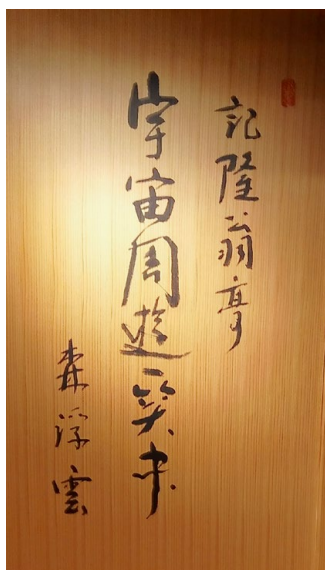 記隆翁亭
宇宙周遊一笑中
森浮雲